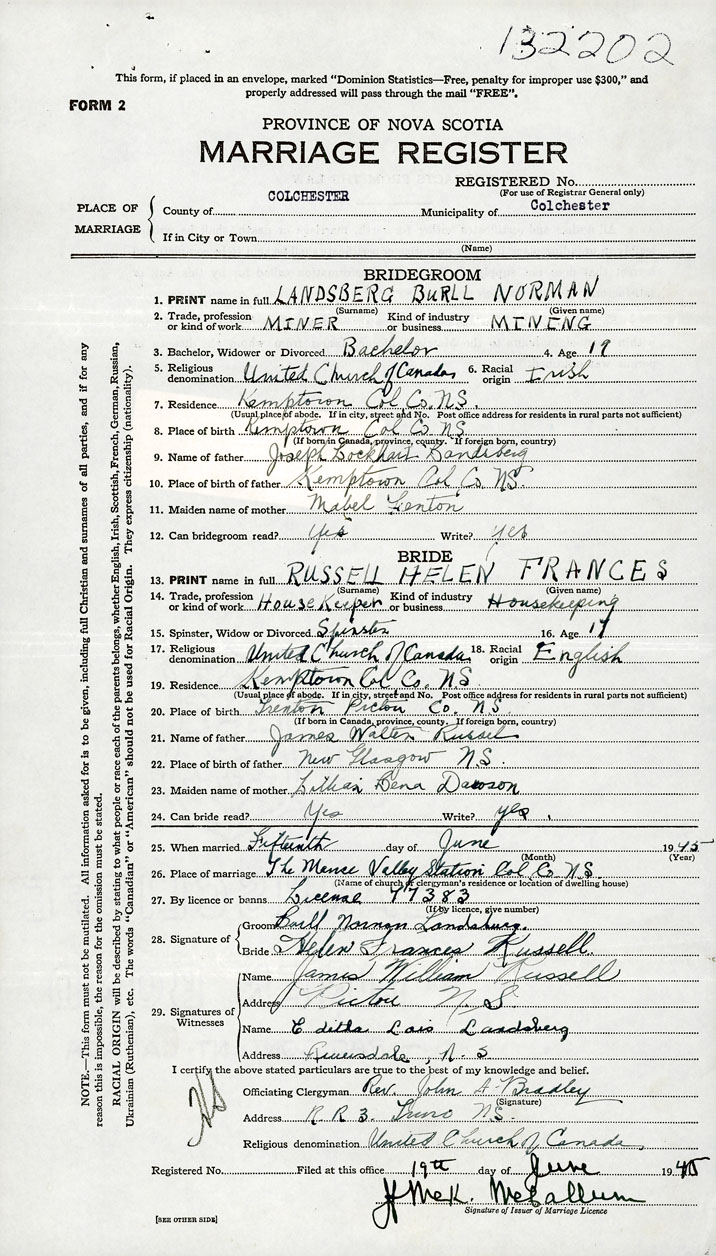 132202
This form, if placed in an envelope, marked "Dominion Statistics—Free, penalty for improper use $300," and
properly addressed will pass through the mail "FREE".
FORM 2
PROVINCE OF NOVA SCOTIA
MARRIAGE REGISTER
REGISTERED No.
(For use of Registrar General only)
PLACE OF MARRIAGE
County of COLCHESTER Municipality of Colchester
If in City or Town
(Name)
BRIDEGROOM
1. PRINT name in full LANDSBERG BURLL NORMAN
(Surname) (Given name)
2. Trade, profession or kind of work MINER Kind of industry or business MINENG
3. Bachelor, Widower or Divorced Bachelor 4. Age 19
5. Religious denomination United Church of Canada 6. Racial origin Irish
7. Residence Kemptown Col Co. N.S.
(Usual place of abode. If in city, street and No. Post office address for residents in rural parts not sufficient)
8. Place of birth Kemptown Col Co. NS
(If born in Canada, province, county. If foreign born, country)
9. Name of father Joseph Lockhart Landsberg
10. Place of birth of father Kemptown Col Co NS.
11. Maiden name of mother Mabel Fenton
12. Can bridegroom read? Yes Write? yes
BRIDE
13. PRINT name in full RUSSELL HELEN FRANCES
(Surname) (Given name)
14. Trade, profession or kind of work HouseKeeper Kind of industry or business Housekeeping
15. Spinster, Widow or Divorced Spinster 16. Age
17. Religious denomination United Church of Canada 18. Racial origin English
19. Residence Kemptown Col Co. NS
(Usual place of abode. If in city, street and No. Post office address for residents in rural parts not sufficient)
20. Place of birth Trenton Pictou Co. NS
(If born in Canada, province, county. If foreign born, country)
21. Name of father James Walter Russel
22. Place of birth of father New Glasgow N.S.
23. Maiden name of mother Lillian Lena Dawson
24. Can bride read? Yes Write? yes
25. When married Fifteenth day of June 1945
(Month) (Year)
26. Place of marriage The Manse Valley Station Col Co N.S.
(Name of church or clergyman's residence or location of dwelling house)
27. By licence or banns License 77383
(If by licence, give number)
28. Signature of
Groom Burll Norman Landsberg.
Bride Helen Frances Russell.
29. Signatures of Witnesses
Name James William Russell
Address Pictou N.S.
Name Editha Lois Landsberg
Address Riversdale, N.S
I certify the above stated particulars are true to the best of my knowledge and belief.
Officiating Clergyman Rev. John A Bradley
(Signature)
Address R R 3. Truro NS.
Religious denomination United Church of Canada,
Registered No. Filed at this office 19th day of June 1945
H McK. McCallum
Signature of Issuer of Marriage Licence
[SEE OTHER SIDE]
NOTE.—This form must not be mutilated. All information asked for is to be given, including full Christian and surnames of all parties, and if for any
reason this is impossible, the reason for the omission must be stated.
RACIAL ORIGIN will be described by stating to what people or race each of the parents belongs, whether English, Irish, Scottish, French, German, Russian,
Ukrainian (Ruthenian), etc. The words "Canadian" or "American" should not be used for Racial Origin. They express citizenship (nationality).